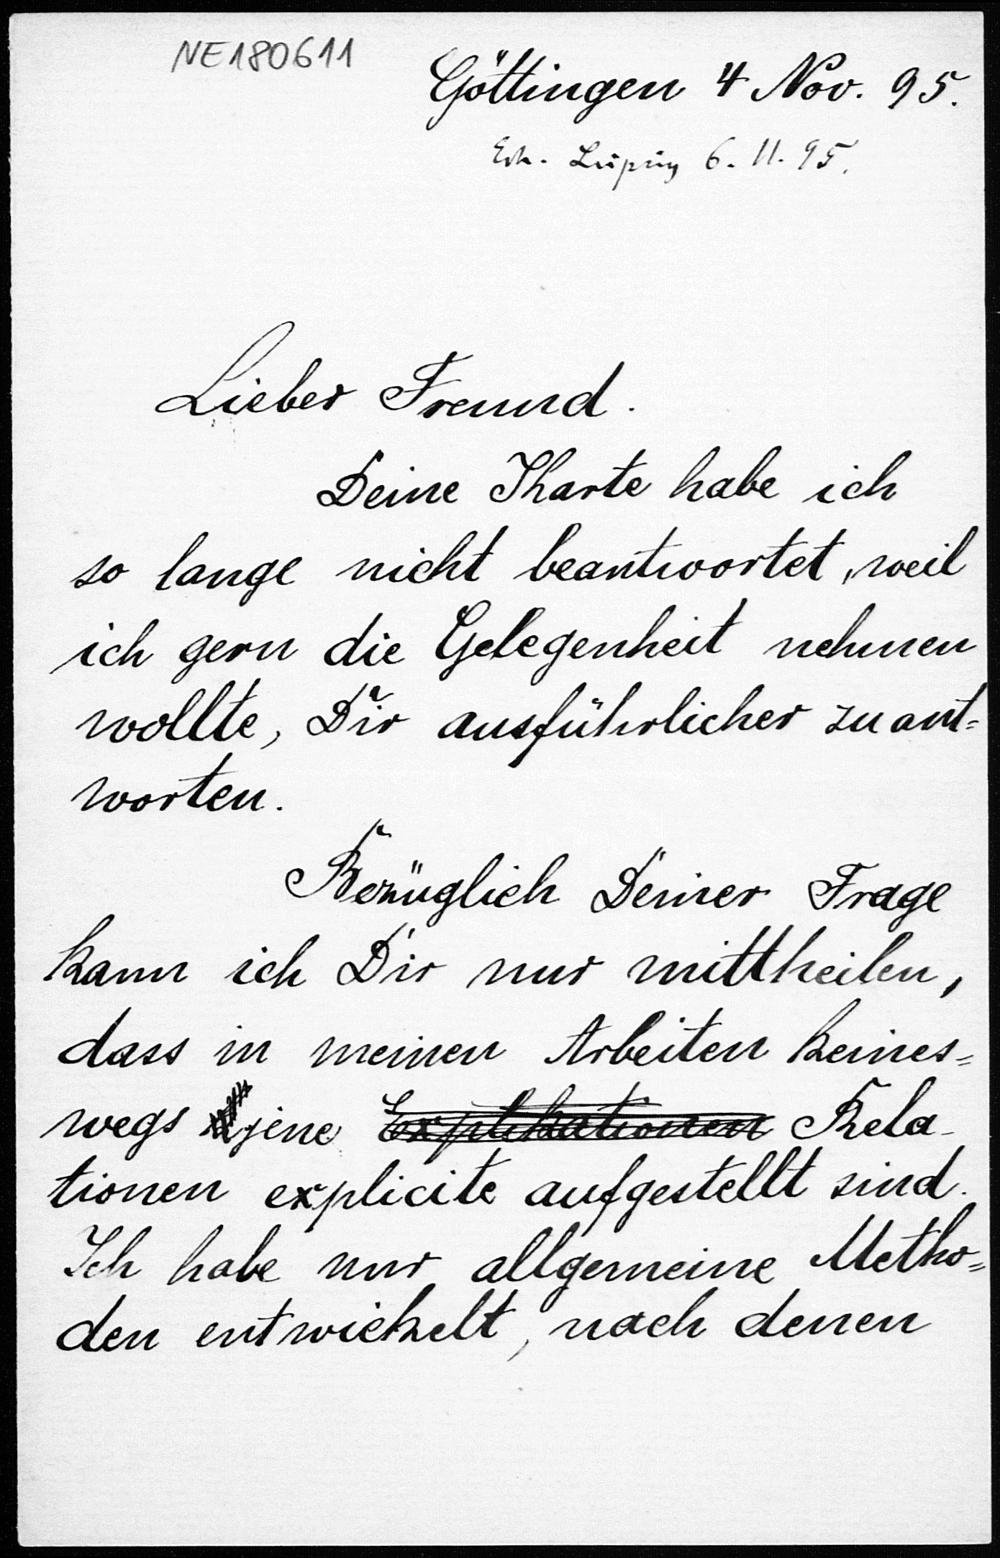 NE180611
Göttingen 4 Nov. 95.
Erh. Leipzig 6. 11. 95.
Lieber Freund.
Deine Karte habe ich
so lange nicht beantwortet, weil
ich gern die Gelegenheit nehmen
wollte, Dir ausführlicher zu ant-
worten.
Bezüglich Deiner Frage
kann ich Dir nur mittheilen,
dass in meinen Arbeiten keines-
wegs jene Explikationen Rela-
tionen explicite aufgestellt sind.
Ich habe nur allgemeine Metho-
den entwickelt, nach denen